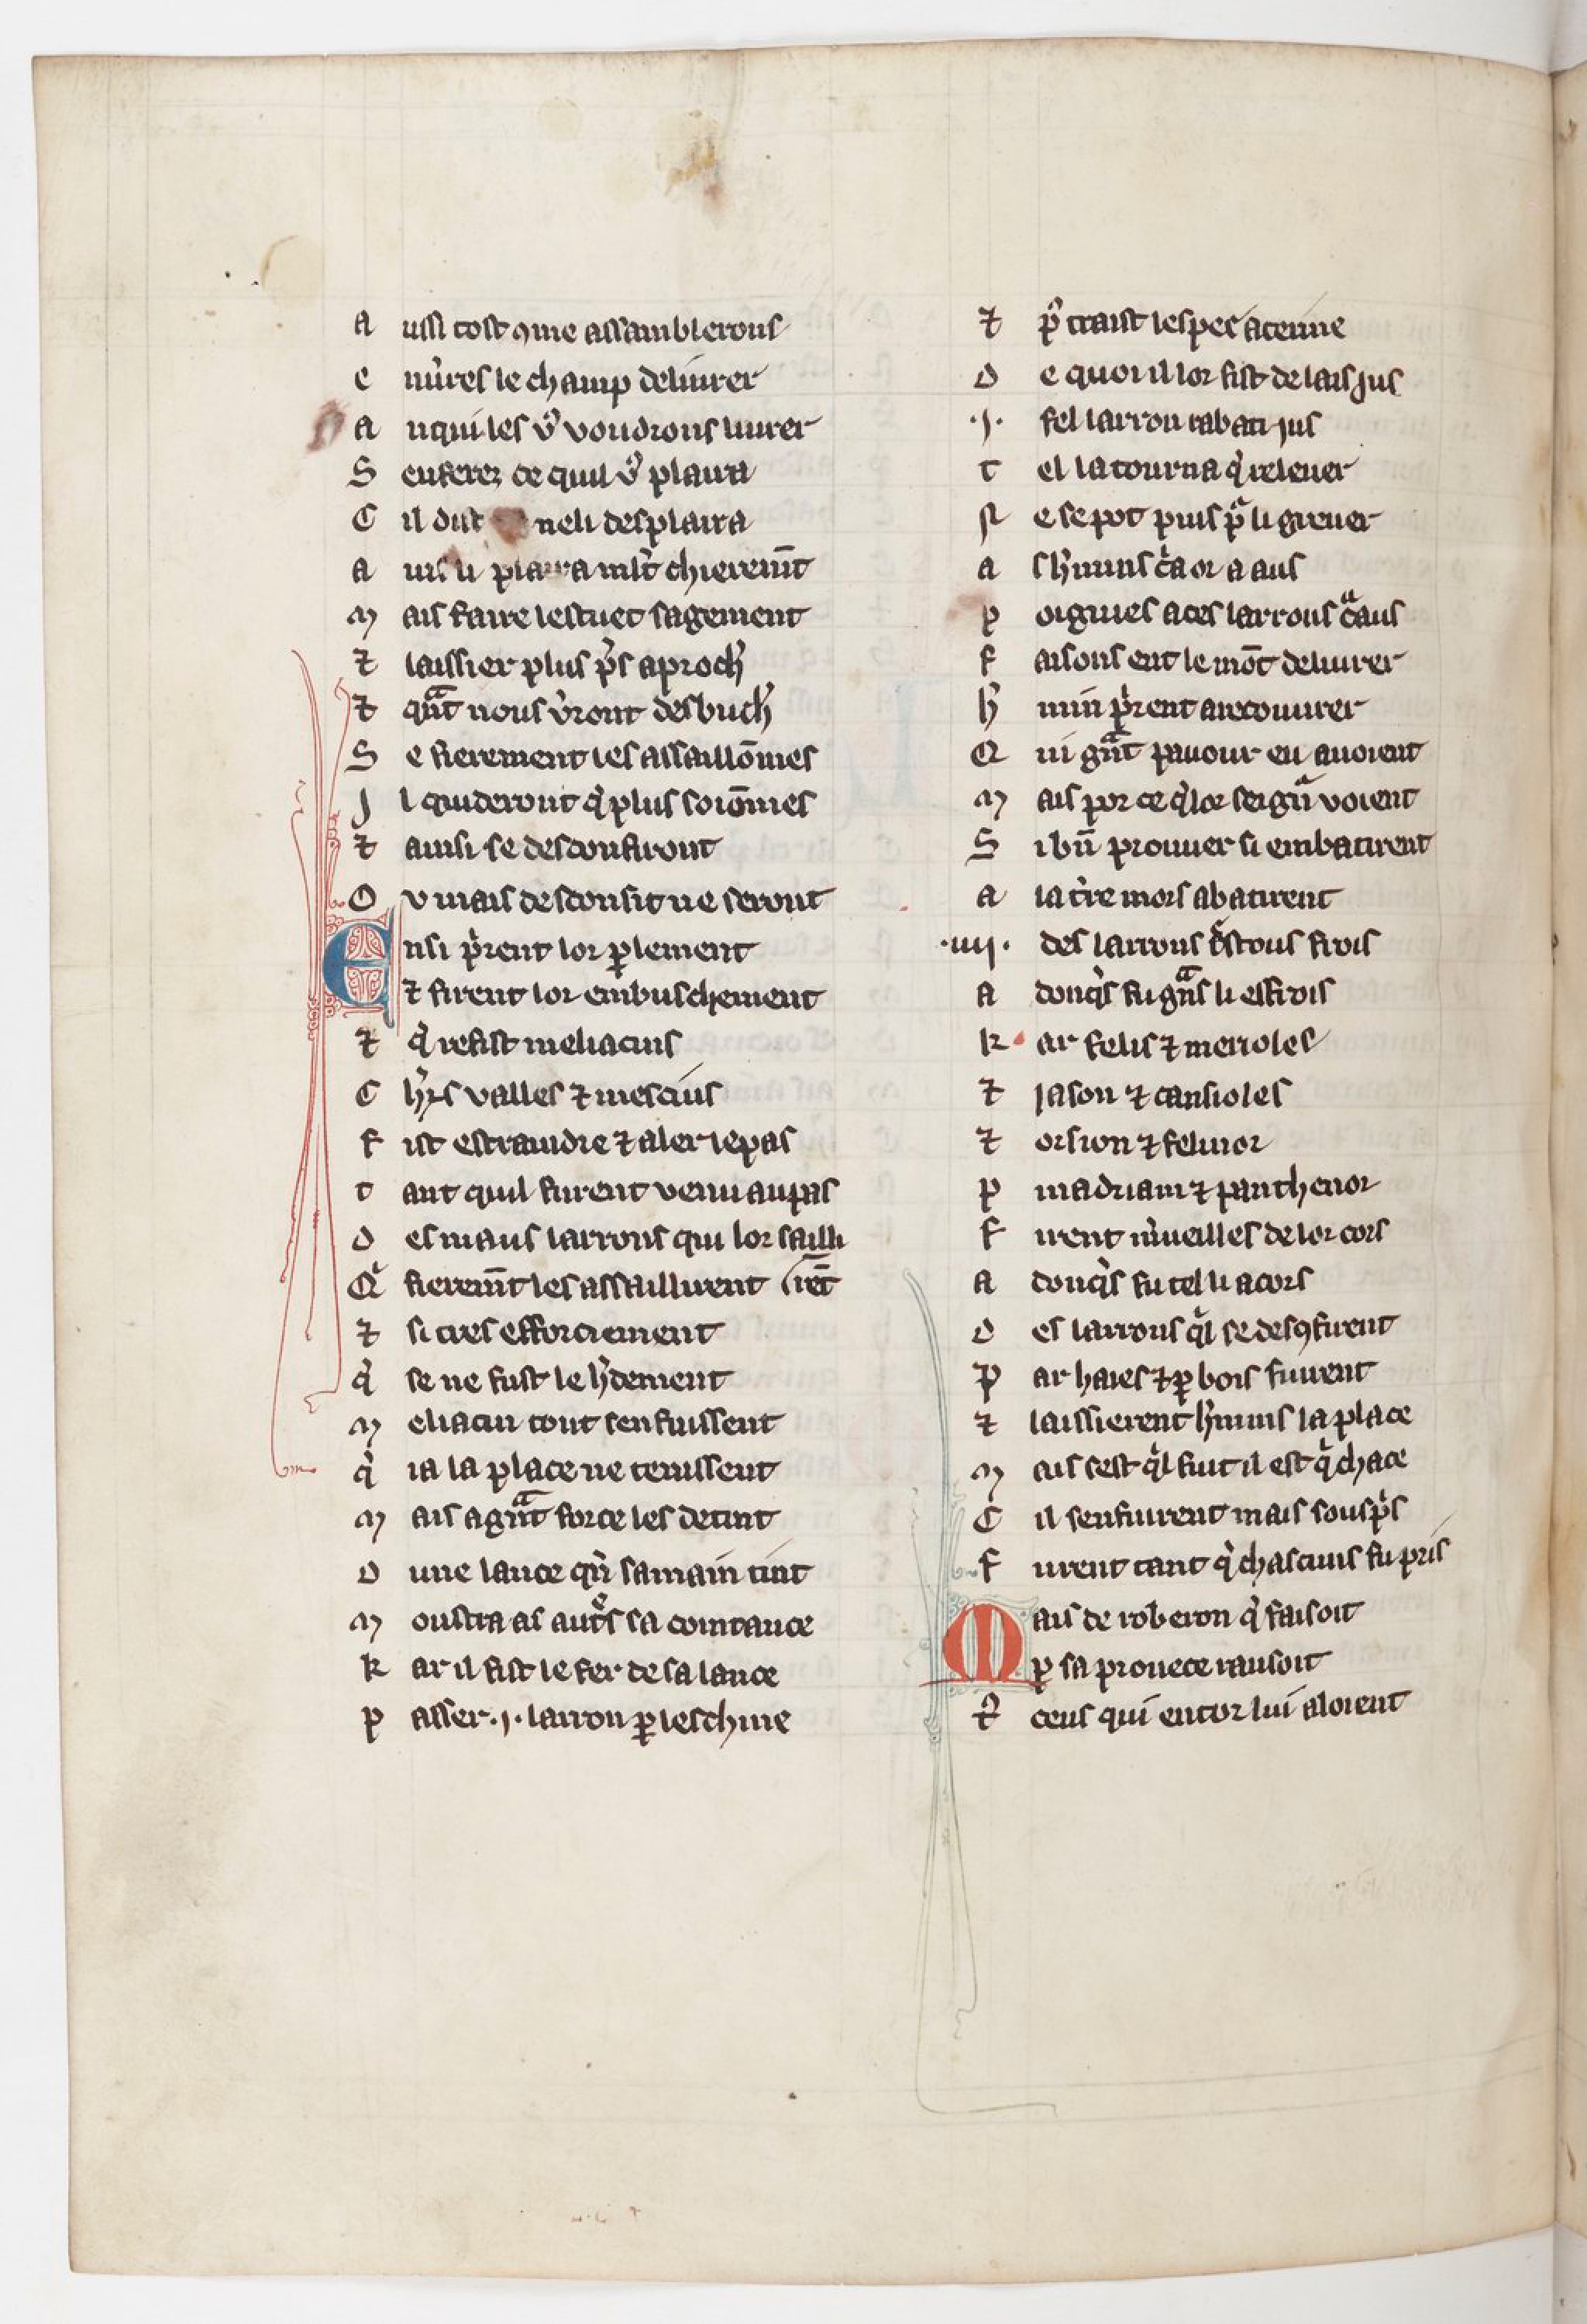 A ussi tost ꝯme assamblerons
E nũres le champ deliurer
A nqui les v᷒ voudrons liurer
S en ferez ce quil v᷒ plaira
C il dist neli desplaira
A ins li plaira ml̃t chierem̃t
M ais faire lestuet sagement
⁊ laissier plus p̃s aproch̛
⁊ qᵃ̃t nous v̛ront desbuch̛
S e fierement les assaillõmes
J l quideront q̛ plus soiõmes
⁊ ainsi se desconfiront
O v mais desconfit ne seront
E nsi p̛rent lor ꝑlement
⁊ firent lor embuschement
⁊ q̛ refist meliacins
C h̛rs valles ⁊ mescins
F ist estraindre ⁊ aler le pas
T ant quil furent venu au pas
D es maus larrons qui lor sailli
Q̛ fierem̃t les assaillirent (rẽt
⁊ si tres efforciement
q̛ se ne fust le h̛dement
M eliacin tout sen fuissent
q̛ ia la place ne tenissent
M ais a gᵃ̃t force les detint
D une lance qũ sa main tint
M oustra as aut᷒s sa cointance
K ar il fist le fer de sa lance
P asser .j. larron ꝑ leschine
⁊ p᷒ traist lespee acerine
D e quoi il lor fist de lais jus
.j. fel larron rabati jus
T el latourna q̛ releuer
N e se pot puis pᵃ li greuer
A s h̛mins c̛a or a aus
P oignies a ces larrons cᵃaus
F aisons ent le mõt deliurer
H̛ min p̛rent a recouurer
Q ui gᵃ̃t paour eu auoient
M ais por ce q̛ lor seign̛ voient
S i bñ prouuer si embatirent
A la t̛re mors abatirent
.iiij. des larrons t᷒stous frois
A donq̛s fu gᵃ̃s li effrois
K ar felis ⁊ merioles
⁊ jason ⁊ cansioles
⁊ orsion ⁊ felinor
P madriam ⁊ panthenor
F irent m̛ueilles de lor cors
A donq̛s fu tel li acors
D es larrons q̛l se desꝯfirent
P ar haies ⁊ ꝑ bois fuirent
⁊ laissierent h̛mins la place
M ais sest q̛l fuit il est q̛ chace
C il senfuirent mais souspᵉs
F urent tant q̛ chascuns fu pris
M ais de roberon q̛ faisoit
ꝑ sa prouece rausoit
T᷒ ceus qui entor lui aloient